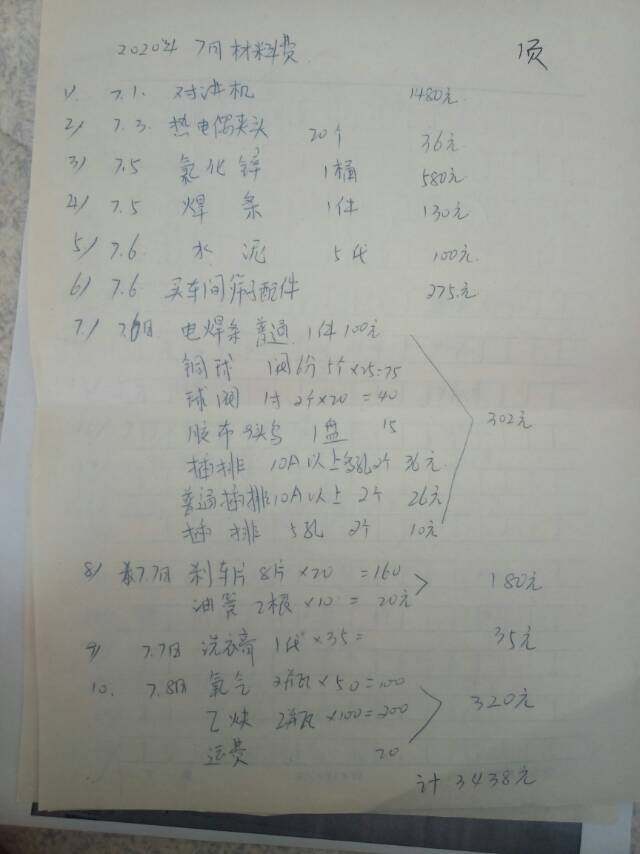 2020年 7月材料费 1页
1) 7.1. 对讲机 1480元
2) 7.3. 热电偶夹头 20个 36元
3) 7.5 氯化锌 1桶 580元
4) 7.5 焊条 1件 130元
5) 7.6 水泥 5代 100元
6) 7.6 买车间 配件 275元
7) 7.6日 电焊条 普通 1件 100元
铜球 ×25=75
球阀 1寸 2个×20=40
胶布 1盘 15
插排 10A以上 2个 36元
普通插排10A以上 2个 26元
插排 5孔 2个 10元
302元
8) 7.7日 刹车片 8片×20 =160
油管 2根×10 = 20元
180元
9) 7.7日 洗衣膏 1代×35= 35元
10. 7.8日 氧气 2瓶×50=100
乙炔 2瓶×100=200
运费 20
320元
计 3438元